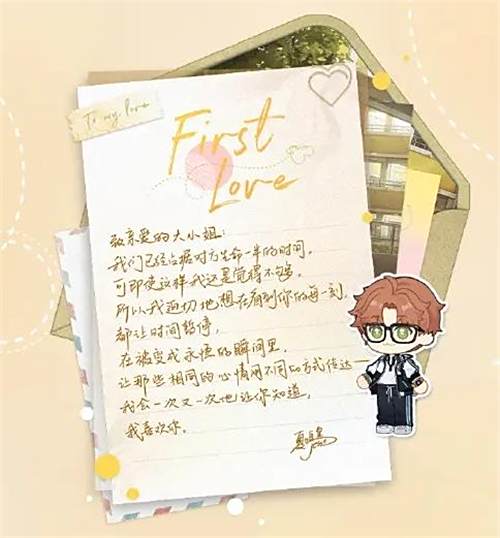 To my love
First
Love
致亲爱的大小姐:
我们已经占据对方生命一半的时间,
可即使这样我还是觉得不够。
所以我迫切地想在看到你的每一刻,
都让时间暂停,
在被变成永恒的瞬间里,
让那些相同的心情用不同的方式传达——
我会一次又一次地让你知道,
我喜欢你。
夏鸣星